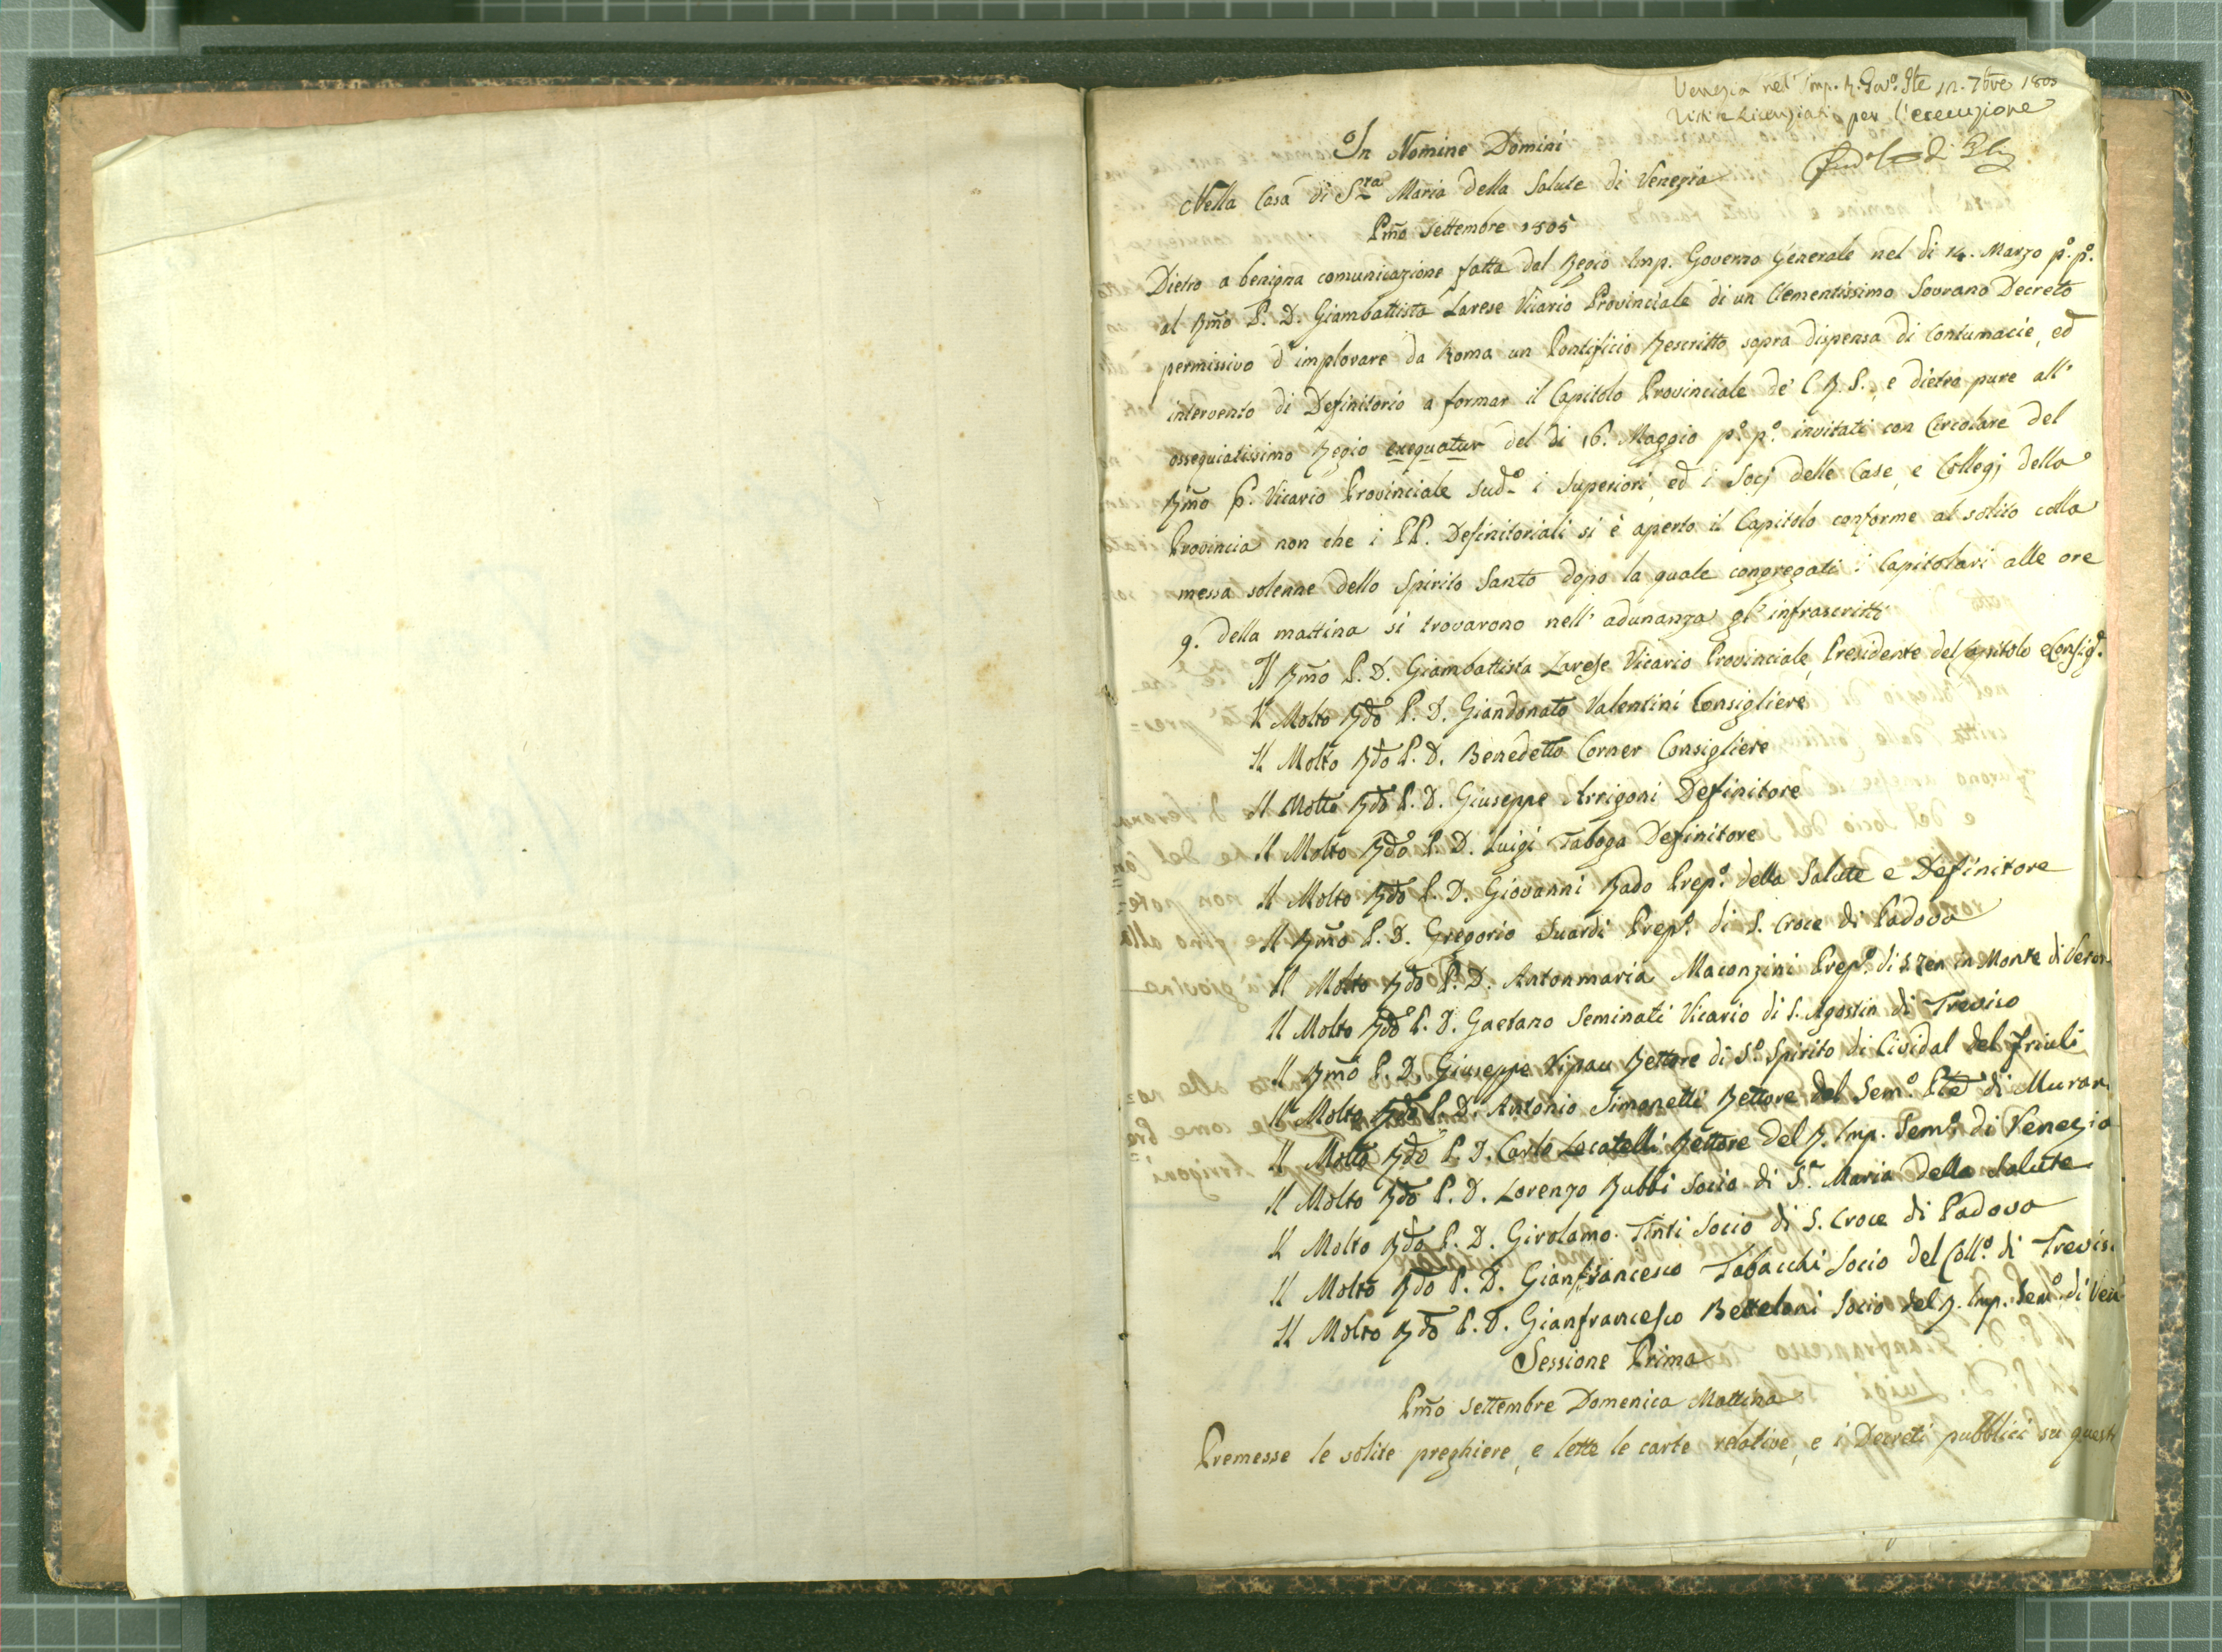 Venezia nel Imp. R. Gov.º Gle 12. 7bre 1805
Visti e Licenziati per l'esecuzione
In Nomine Domini
Nella Casa di S.ra Maria della Salute di Venezia
Pmo Settembre 1805
Dietro a benigna comunicazione fatta dal Regio Imp. Governo Generale nel dì 14. Marzo p.º p.º
al Rmo P. D. Giambattista Larese Vicario Provinciale di un Clementissimo Sovrano Decreto
permissivo d'implorare da Roma un Pontificio Rescritto sopra dispensa di contumacie, ed
intervento di Definitorio a formar il Capitolo Provinciale de' C. R. S., e dietro pure all'
ossequiatissimo Regio exequatur del dì 16. Maggio p.º p.º invitati con Circolare del
Rmo P. Vicario Provinciale sud.º i Superiori, ed i Socj delle Case, e Collegj della
Provincia non che i PP. Definitoriali si è aperto il Capitolo conforme al solito colla
messa solenne dello Spirito Santo dopo la quale congregati i Capitolari alle ore
9. della mattina si trovarono nell'adunanza gl'infrascritti
Il Rmo P. D. Giambattista Larese Vicario Provinciale, Presidente del Capitolo e Consig.e
Il Molto Rdo P. D. Giandonato Valentini Consigliere
Il Molto Rdo P. D. Benedetto Corner Consigliere
Il Molto Rdo P. D. Giuseppe Arrigoni Definitore
Il Molto Rdo P. D. Luigi Taboga Definitore
Il Molto Rdo P. D. Giovanni Rado Prep.º della Salute e Definitore
Il Rmo P. D. Gregorio Suardi Prep.º di S. Croce di Padova
Il Molto Rdo P. D. Antonmaria Maconzini Prep.º di S. Zen in Monte di Veron
Il Molto Rdo P. D. Gaetano Seminati Vicario di S. Agostin di Treviso
Il Rmo P. D. Giuseppe Vipau Rettore di S.º Spirito di Cividal del Friuli
Il Molto Rdo P. D. Antonio Simonetti Rettore del Sem.º Ple di Muran
Il Molto Rdo P. D. Carlo Locatelli Rettore del R. Imp. Sem.º di Venezia
Il Molto Rdo P. D. Lorenzo Rubbi Socio di S.a Maria della Salute
Il Molto Rdo P. D. Girolamo Tinti Socio di S. Croce di Padova
Il Molto Rdo P. D. Gianfrancesco Tabacchi Socio del Coll.º di Trevis
Il Molto Rdo P. D. Gianfrancesco Betteloni Socio del R. Imp. Sem.º di Ven
Sessione Prima
Pmo Settembre Domenica Mattina
Premesse le solite preghiere, e lette le carte relative, e i Decreti pubblici su quest